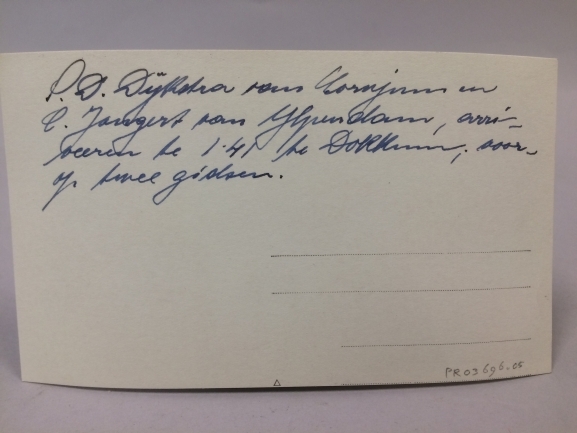 P. D. Dijkstra van Cornjum en
C. Jongert van Ilpendam, arri-
veeren te 1.41 te Dokkum, voor-
op twee gidsen.
PR03696.05